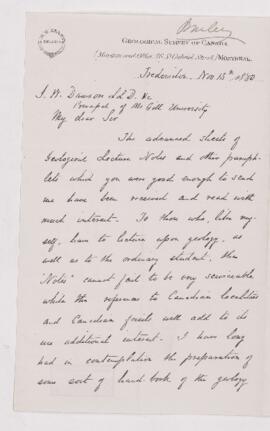 Bailey
GEOLOGICAL SURVEY OF CANADA
(Museum and Office, 76 St Gabriel Street) MONTREAL
Fredericton, Nov 15th, 1880
J. W. Dawson LLD. &c
Principal of McGill University
My dear Sir
The advanced sheets of
Geological Lecture Notes and other pamph-
lets which you were good enough to send
me have been received and read with
much interest. To those who, like my-
self, have to lecture upon geology, as
well as to the ordinary student, these
Notes" cannot fail to be very serviceable
while the references to Canadian localities
and Canadian fossils will add to its
use additional interest. I have long
had in contemplation the preparation of
some sort of hand book of the geology